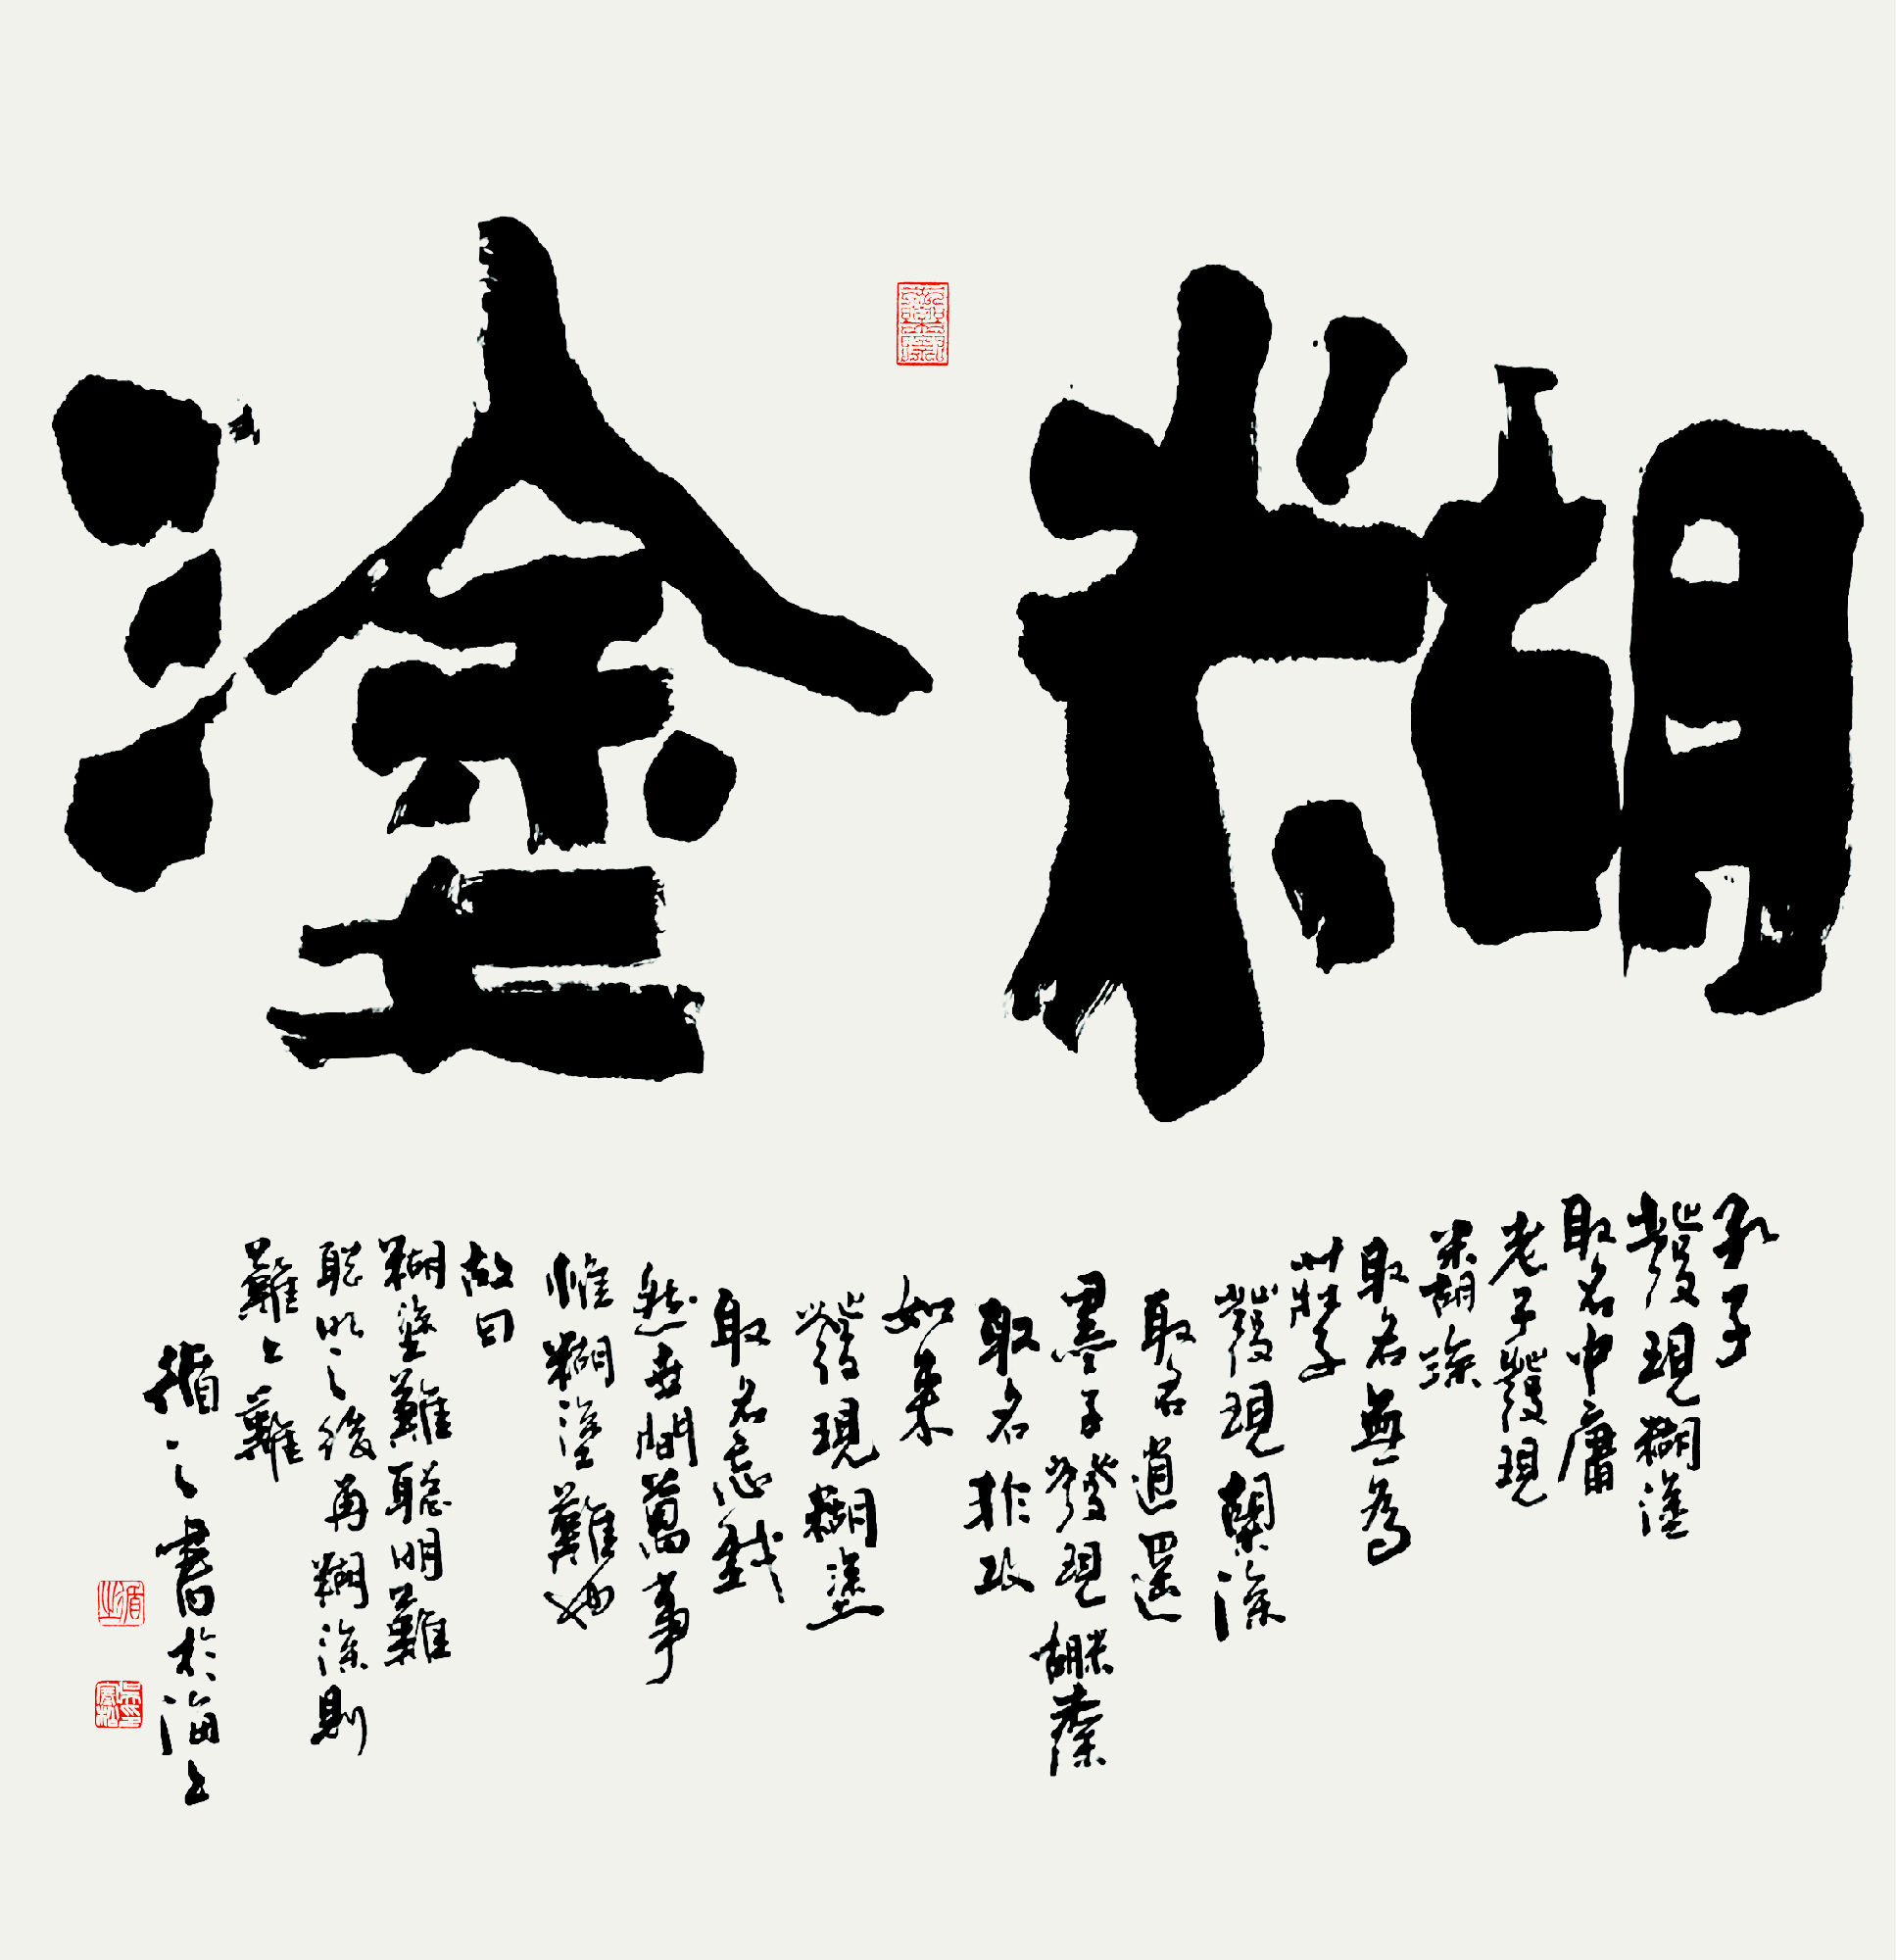 糊塗
孔子
發現糊塗
取名中庸
老子發現
糊涂
取名無為
莊子
發現糊涂
取名逍遙
墨子發現糊塗
取名非攻
如来
發現糊塗
取名忘我
然世間萬事
惟糊塗難也
故曰
糊塗難聰明難
聪明之後再糊涂則
難上難
循之書於海上
循之